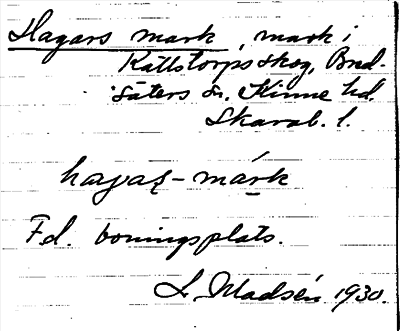 Hagars mark, mark i
Källstorps skog, Bred-
säters sn. Kinne hd.
Skarab. l.
hagaʂ-márk
Fd. boningsplats.
L. Madsén 1930.